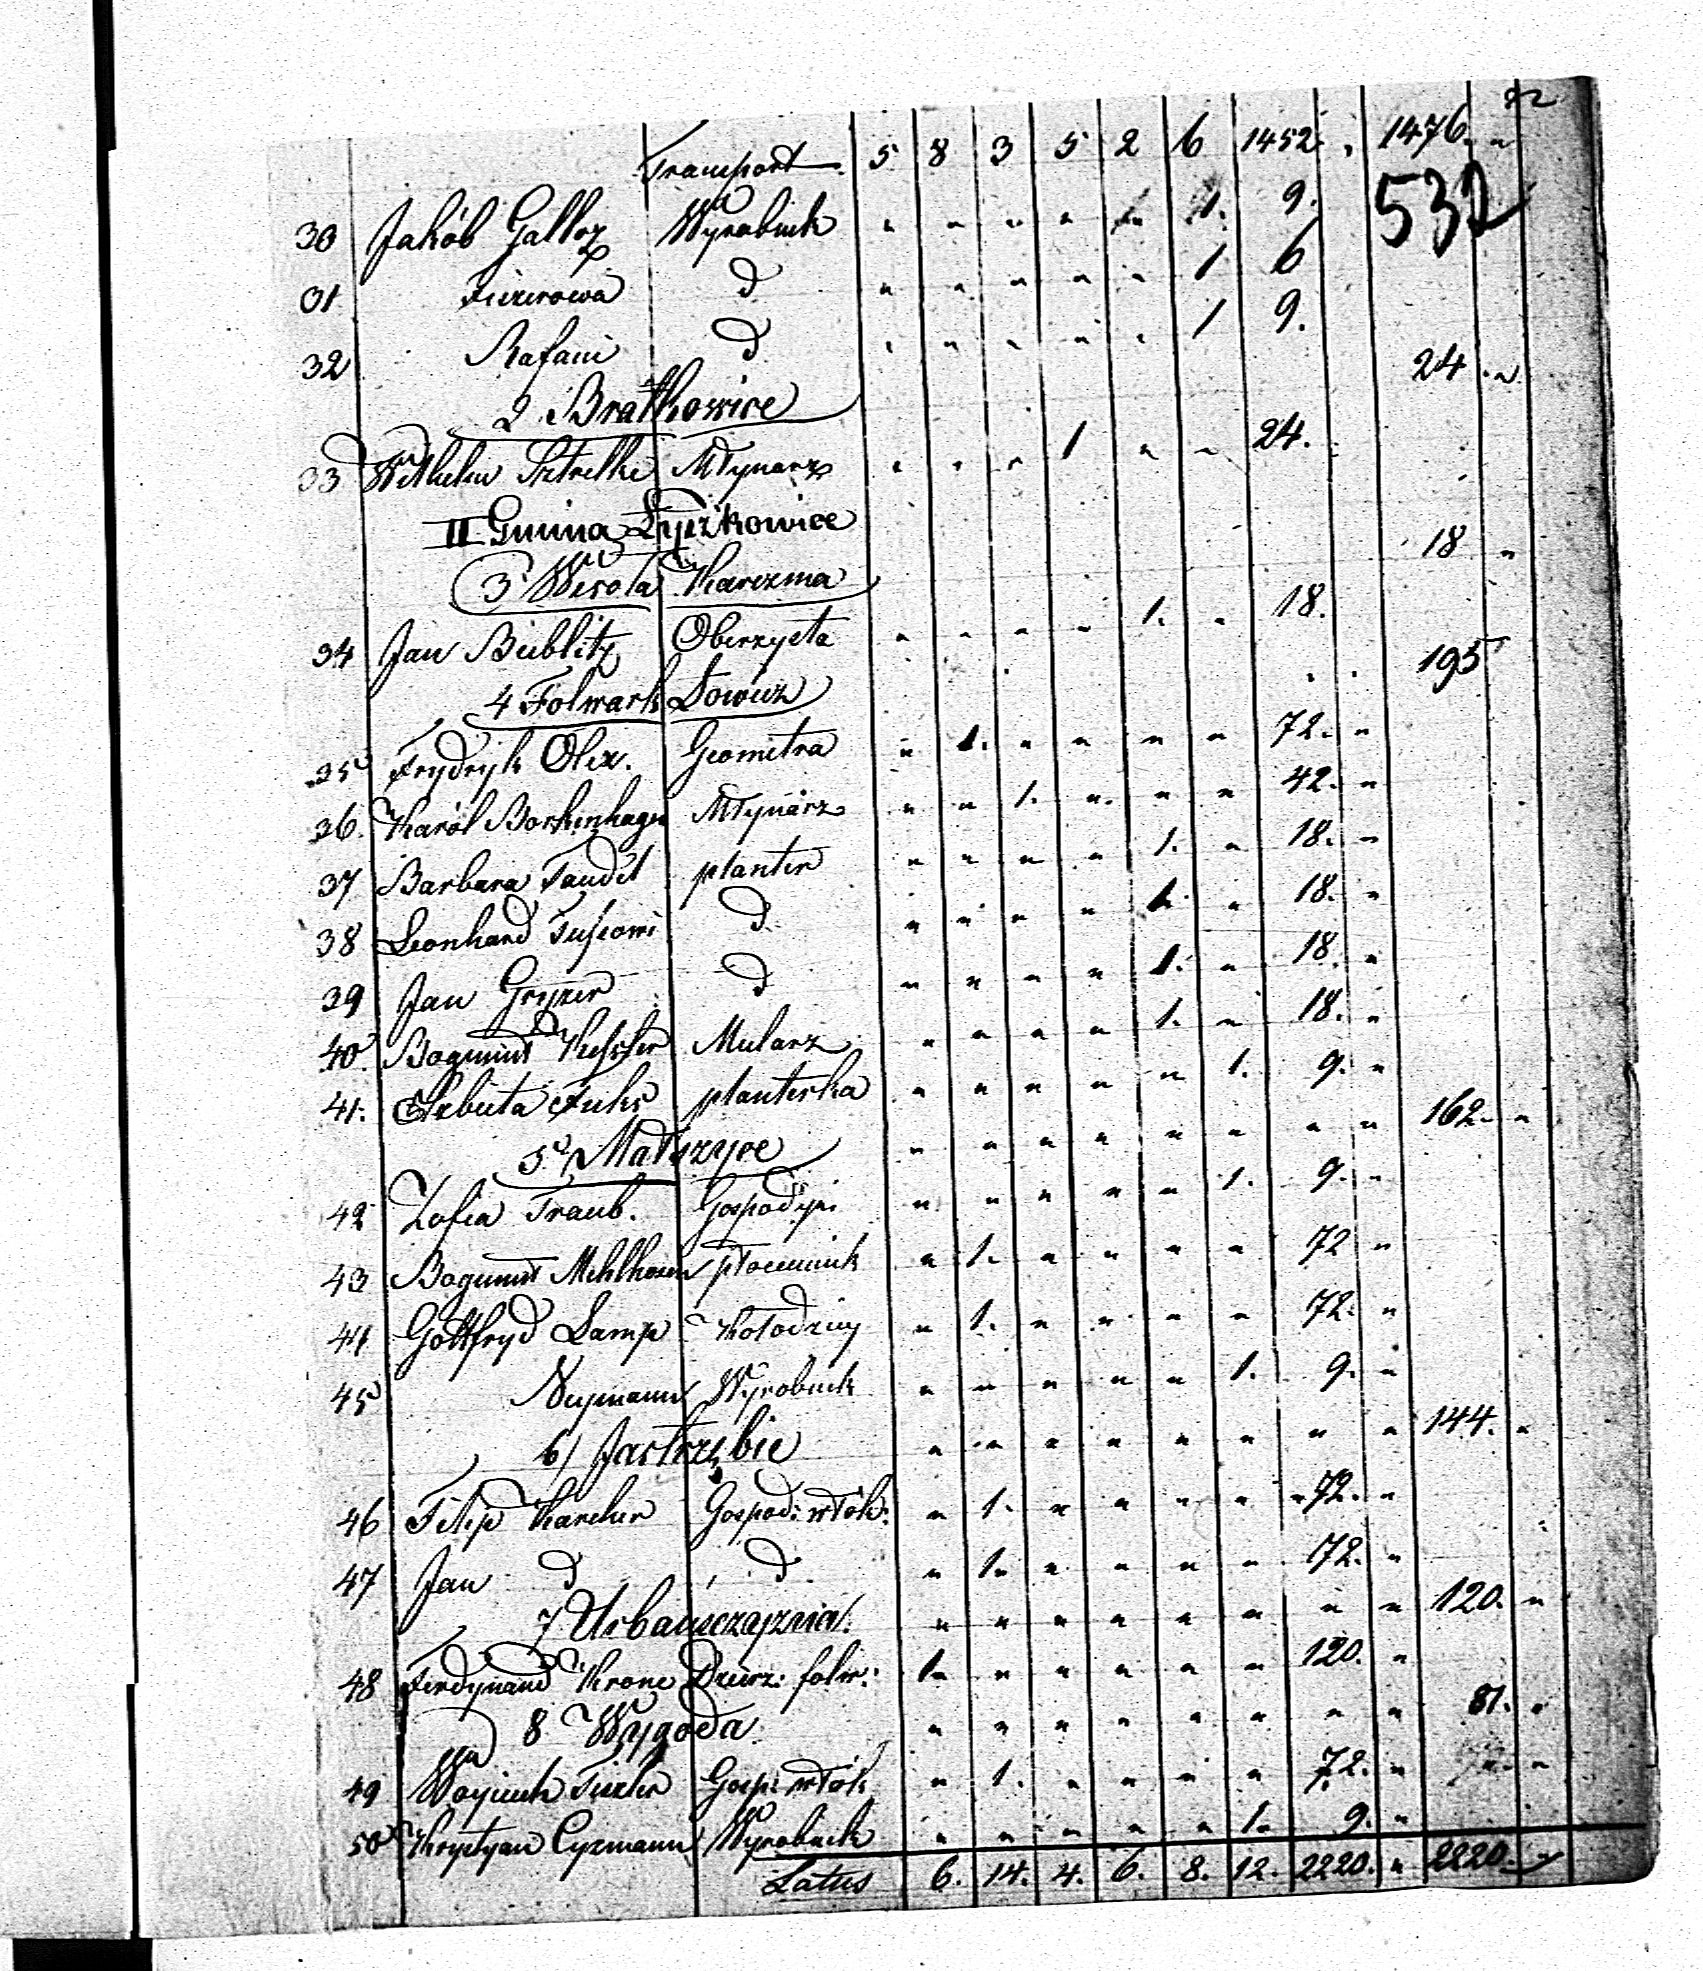 22
Transport 5 8 3 5 2 6 1452. " 1476. "
532
30 Jakób Galloz Wyrobnik " " " " " 1. 9.
31 Fiszerowa d " " " " " 1 6
32 Rafani d " " " " " 1 9.
2 Bratkowice 24. "
33 Wilhelm Sztrelke Młynarz " " " 1 " " 24.
II Gmina Łyszkowice
3 Wesoła Karczma 18 "
34 Jan Bieblitz Oberzysta " " " " 1. " 18.
4 Folwark Łowicz 195
35 Frydryk Olex. Geometra " 1. " " " " 72. "
36. Karól Borkenhagen Młynarz " " 1. " " " 42. "
37 Barbara Taudel planter " " " " 1. " 18. "
38 Leonhard d " " " " 1. " 18. "
39 Jan Gryzer d " " " " 1. " 18. "
40. Bogumił Kessler Mularz " " " " 1. " 18. "
41. Elzbieta Fuks planterka " " " " " 1. 9. "
5 Matyzyce " " " " " " " " 162. "
42 Zofia Traub. Gospodyni " " " " " 1. 9. "
43 Bogumił Mehlhorn płociennik " 1. " " " " 72 "
44 Gottfryd Lamp Kołodziey " 1. " " " " 72. "
45 Neymann Wyrobnik " " " " " 1. 9. "
6/ Jastrzębie " " " " " " " " 144. "
46 Filip Karcher Gospod: włók: " 1. " " " " 72. "
47 Jan d d " 1. " " " " 72. "
7 Urbańszczyzna. " " " " " " " " 120. "
48 Ferdynand Krone Dzierz: folw: 1. " " " " " 120. "
8 Wygoda " " " " " " " " 81. "
49 Woyciech Fiszer Gosp: włók " 1. " " " " 72. "
50 Krystyan Cyzmann Wyrobnik " " " " " 1. 9. "
Latus 6. 14. 4. 6. 8. 12. 2220. " 2220. "